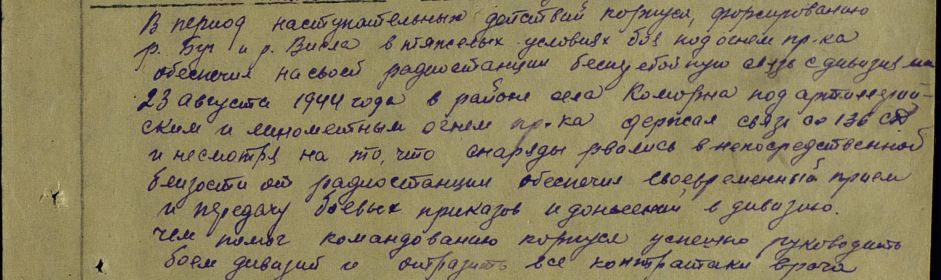 В период наступательных действий корпуса, форсированию
р. Буг и р. Висла в тяжелых условиях боя под огнем пр-ка
обеспечил на своей радиостанции бесперебойную связь с дивизиями
23 августа 1944 года в районе села Коморна под артиллерий-
ским и минометным огнем пр-ка держал связь со 136 сд
и несмотря на то, что снаряды рвались в непосредственной
близости от радиостанции обеспечил своевременный прием
и передачу боевых приказов и донесений в дивизию.
чем помог командованию корпуса успешно руководить
боем дивизий и отразить все контратаки врага